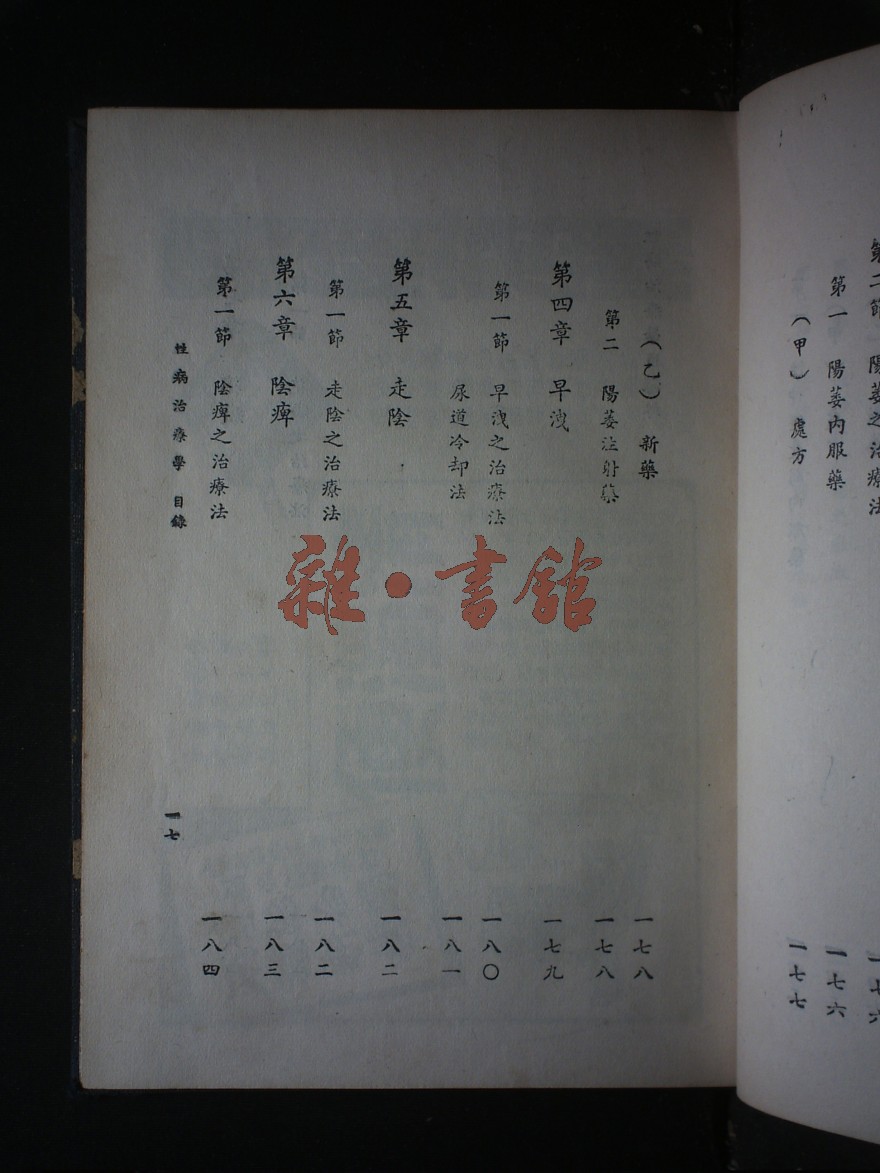 第二節 陽萎之治療法 一七六
第一 陽萎內服藥 一七六
（甲）處方 一七七
（乙）新藥 一七八
第二 陽萎注射藥 一七八
第四章 早洩 一七九
第一節 早洩之治療法 一八〇
尿道冷却法 一八一
第五章 走陰 一八二
第一節 走陰之治療法 一八二
第六章 陰痺 一八三
第一節 陰痺之治療法 一八四
性病治療學 目錄 一七
雜·書館